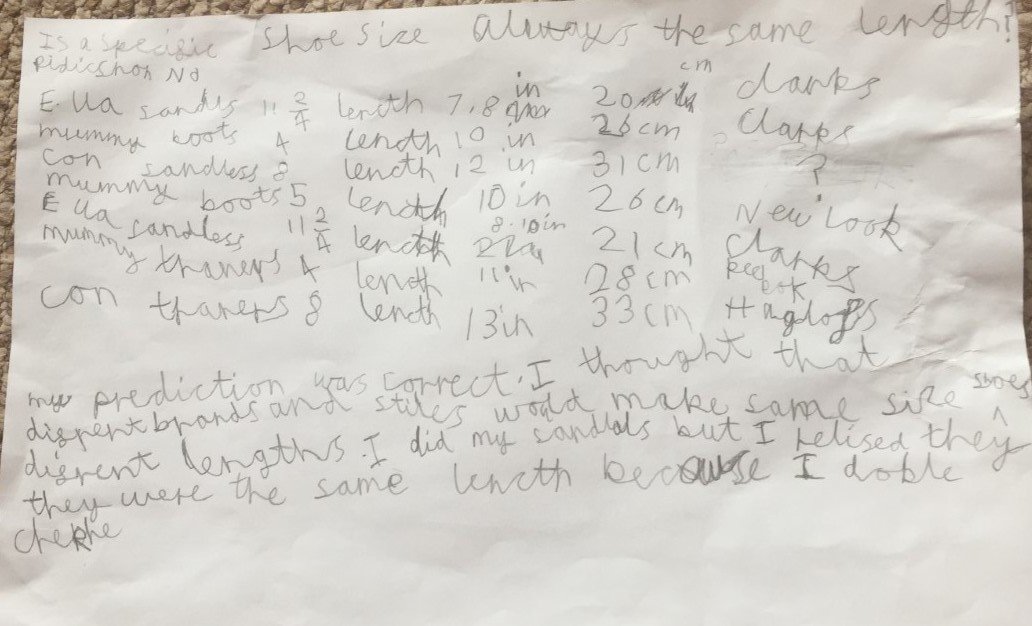 Is a specific shoe size always the same length?
Pridicshon No
E Ua sandls 11 2/4 length 7.8 in 20 cm clarks
mummy boots 4 length 10 in 26cm Clarks
Con sandless 8 length 12 in 31cm ?
mummy boots 5 length 10 in 26 cm New Look
E Ua sandless 11 2/4 length 8.10in 21 cm Clarks
mummy traners 4 length 11 in 28 cm Reebok
Con traners 8 length 13in 33cm Haglofs
my prediction was correct. I thought that
disrent brands and stiles would make same size shoes
disrent lengths. I did my sandals but I relised they
they were the same length because I doble
chekhe